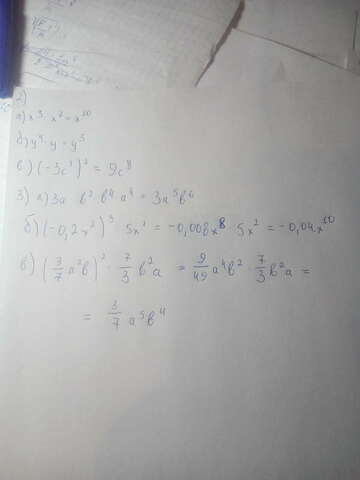 2)
а) x⁸ · x² = x¹⁰
б) y⁴ · y = y⁵
в) (-3c⁴)² = 9c⁸
3) а) 3a b² b⁴ a⁴ = 3a⁵b⁶
б) (-0,2x²)³ 5x² = -0,008x⁸ 5x² = -0,04x¹⁰
в) (3/7 a²b)² · 7/3 b²a = 9/49 a⁴b² · 7/3 b²a =
= 3/7 a⁵b⁴